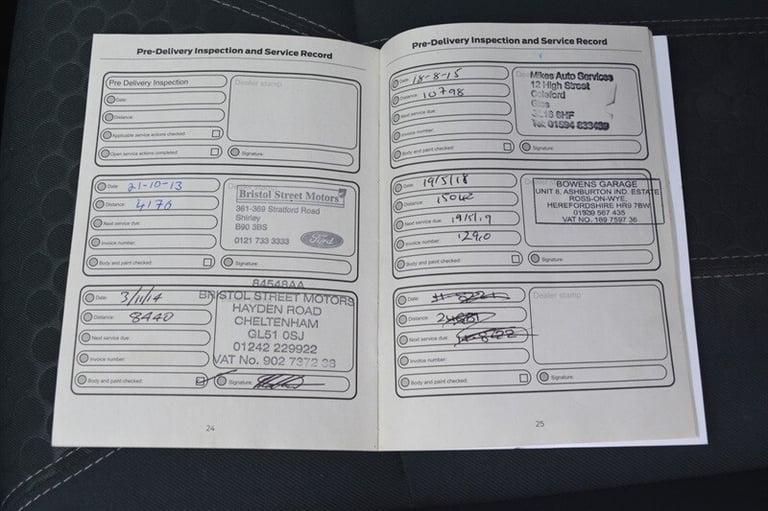 Pre-Delivery Inspection and Service Record
Pre Delivery Inspection
Dealer stamp
Date:
Distance:
Applicable service actions checked:
Open service actions completed:
Signature:
Date: 21-10-13
Distance: 4176
Next service due:
Invoice number:
Body and paint checked:
Signature:
Bristol Street Motors
361-369 Stratford Road
Shirley
B90 3BS
0121 733 3333
Ford
Date: 3/11/14
Distance: 8440
Next service due:
Invoice number:
Body and paint checked:
Signature:
84548AA
BRISTOL STREET MOTORS
HAYDEN ROAD
CHELTENHAM
GL51 0SJ
01242 229922
VAT No. 902 7372 38
24
Pre-Delivery Inspection and Service Record
Date: 18-8-15
Distance: 10798
Next service due:
Invoice number:
Body and paint checked:
Signature:
Mikes Auto Services
12 High Street
Coleford
Glos
Tel: 01594 833499
Date: 19/5/18
Distance:
Next service due: 19/5/19
Invoice number: 12910
Body and paint checked:
Signature:
BOWENS GARAGE
UNIT 8, ASHBURTON IND. ESTATE
ROSS-ON-WYE,
HEREFORDSHIRE HR9 7BW
01989 567 435
VAT NO. 169 7597 36
Date:
Distance:
Next service due:
Invoice number:
Body and paint checked:
Dealer stamp
Signature:
25